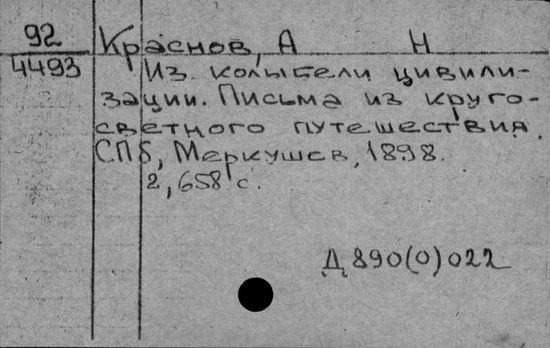 92 Краснов, А Н
4493 Из колыбели цивили-
зации. Письма из круго-
светного путешествия.
СПб, Меркушев, 1898.
2, 658 с.
Д 890(0)022